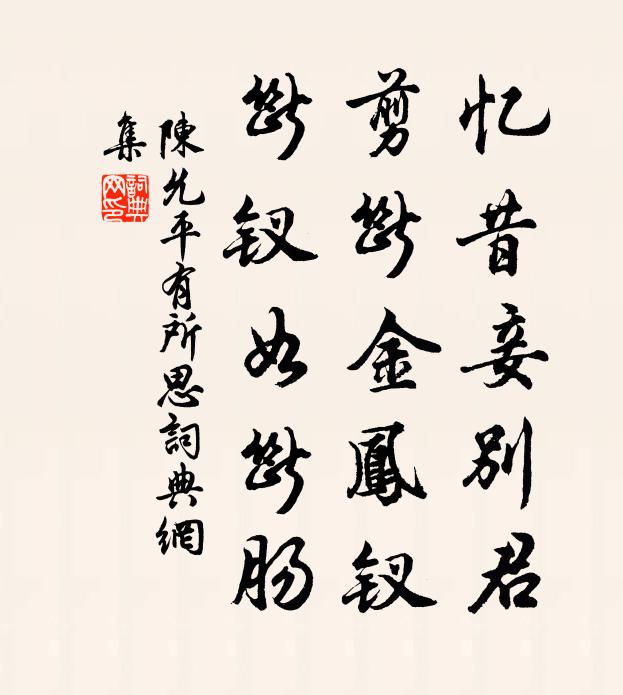 忆昔妾别君
剪断金鳳钗
断钗如断肠
陳允平有所思詞典網
集
詞典网印